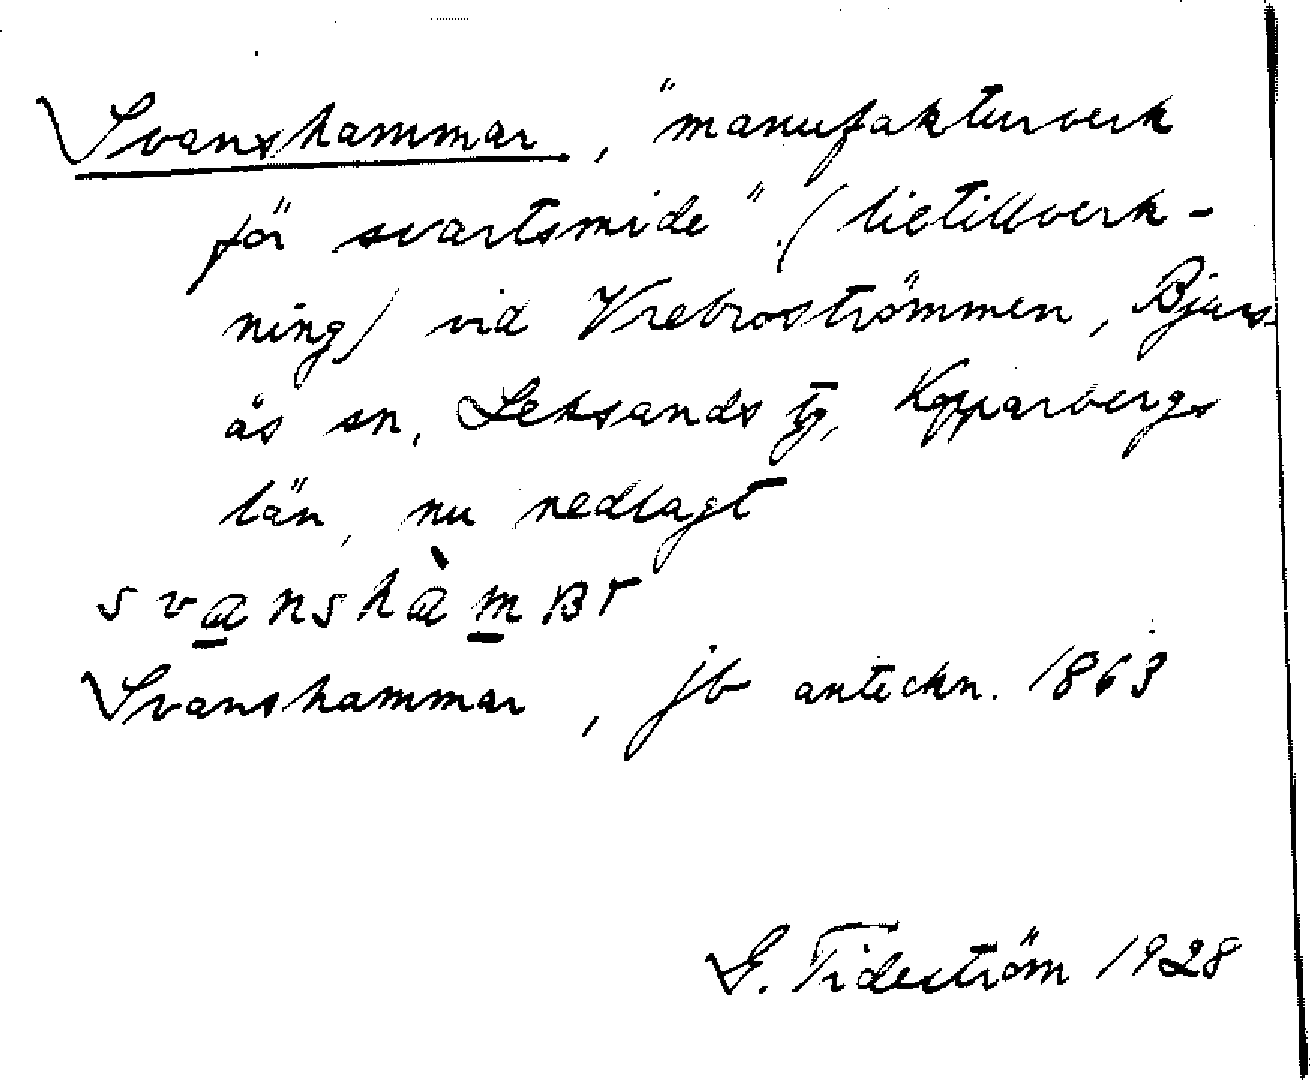 Svanshammar, "manufakturverk
för svartsmide" (lietillverk-
ning) vid Vrebroströmmen, Bjurs-
ås sn, Leksands tg, Kopparbergs
län, nu nedlagt
svanshàmBr
Svanshammar, jb anteckn. 1863
G. Tideström 1928